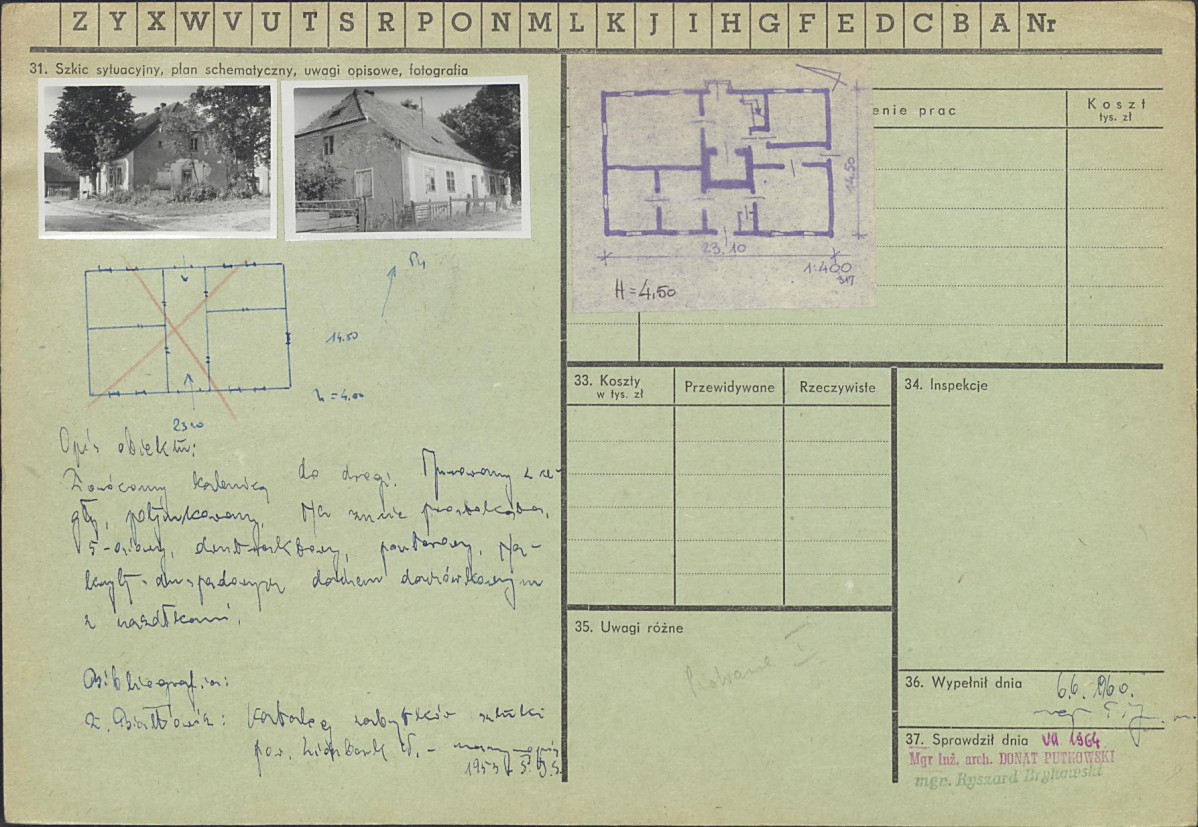 Z Y X W V U T S R P O N M L K J I H G F E D C B A Nr
31. Szkic sytuacyjny, plan schematyczny, uwagi opisowe, fotografia
14.50
h = 4.00
2310
Opis obiektu:
Zwrócony kalenicą do drogi. Murowany z ce-
gły, potynkowany. Na
5-osiowy, dwutraktowy, parterowy. Na-
kryty dwuspadowym dachem dachówkowym
z naczółkami.
Bibliografia:
Katalog zabytków sztuki
pow.
enie prac
Koszt
tys. zł
14.50
23.10
1:400
317
H = 4,50
33. Koszty
w tys. zł
Przewidywane
Rzeczywiste
34. Inspekcje
35. Uwagi różne
36. Wypełnił dnia 6.6.1960.
mgr
37. Sprawdził dnia VII 1964.
Mgr inż. arch. DONAT PUTKOWSKI
mgr. Ryszard Brykowski